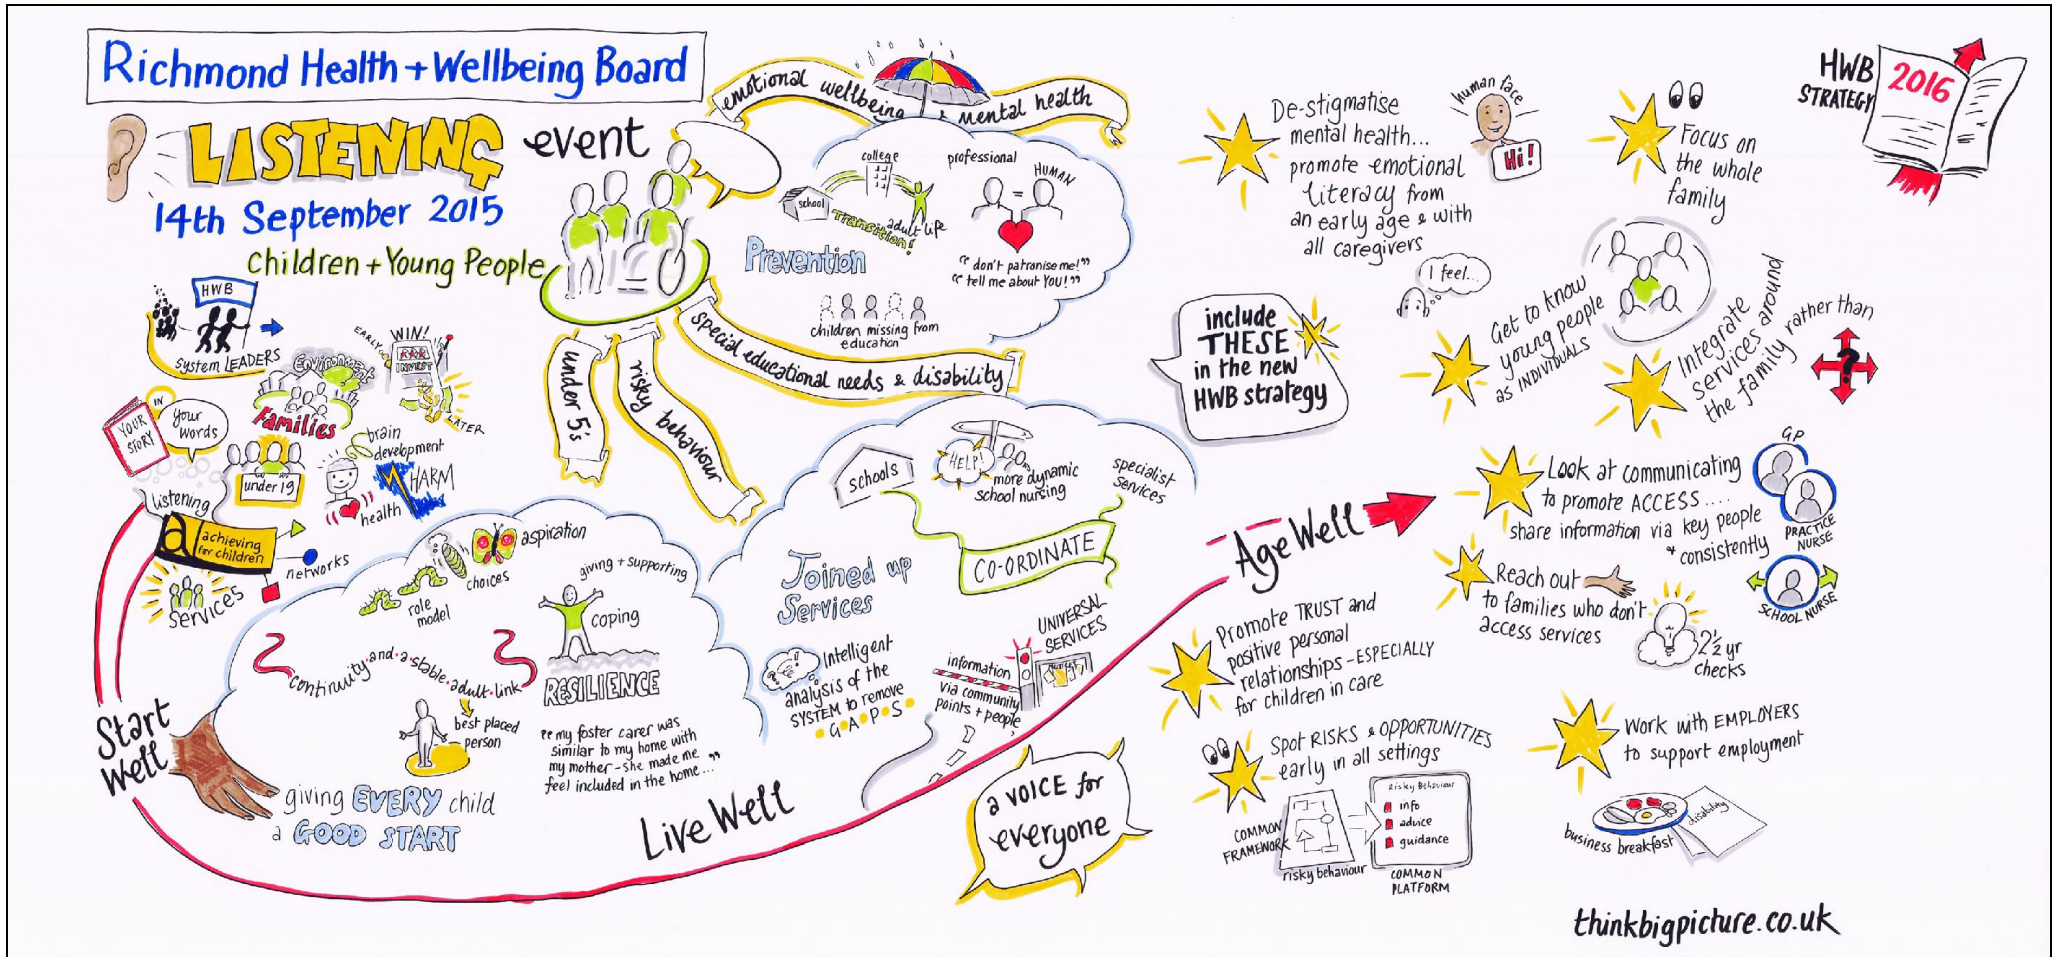 Richmond Health + Wellbeing Board
LISTENING event
14th September 2015
Children + Young People
HWB
system LEADERS
Environment
Families
EARLY
WIN!
INVEST
LATER
YOUR
STORY
IN
your
words
under 19
brain
development
HARM
health
listening
a
achieving
for children
networks
services
emotional wellbeing & mental health
special educational needs & disability
risky behaviour
under 5's
college
school
Transition!
adult life
professional
=
HUMAN
Prevention
"don't patronise me!"
"tell me about YOU!"
children missing from
education
aspiration
choices
role
model
giving + supporting
coping
RESILIENCE
continuity·and·a·stable·adult·link
best placed
person
"my foster carer was
similar to my home with
my mother - she made me
feel included in the home..."
Start
Well
giving EVERY child
a GOOD START
Live Well
schools
HELP!
more dynamic
school nursing
specialist
services
CO-ORDINATE
Joined up
Services
Intelligent
analysis of the
SYSTEM to remove
G·A·P·S
information
via community
points + people
UNIVERSAL
SERVICES
Age Well
a VOICE for
everyone
include
THESE
in the new
HWB strategy
HWB
STRATEGY
2016
De-stigmatise
mental health...
promote emotional
literacy from
an early age & with
all caregivers
human face
Hi!
I feel...
Focus on
the whole
family
Get to know
young people
as INDIVIDUALS
Integrate
services around
the family rather than
?
Look at communicating
to promote ACCESS....
share information via key people
+ consistently
GP
PRACTICE
NURSE
SCHOOL NURSE
Reach out
to families who don't
access services
2½ yr
checks
Promote TRUST and
positive personal
relationships - ESPECIALLY
for children in care
Spot RISKS & OPPORTUNITIES
early in all settings
COMMON
FRAMEWORK
risky behaviour
Risky Behaviour
info
advice
guidance
COMMON
PLATFORM
Work with EMPLOYERS
to support employment
business breakfast
disability
thinkbigpicture.co.uk